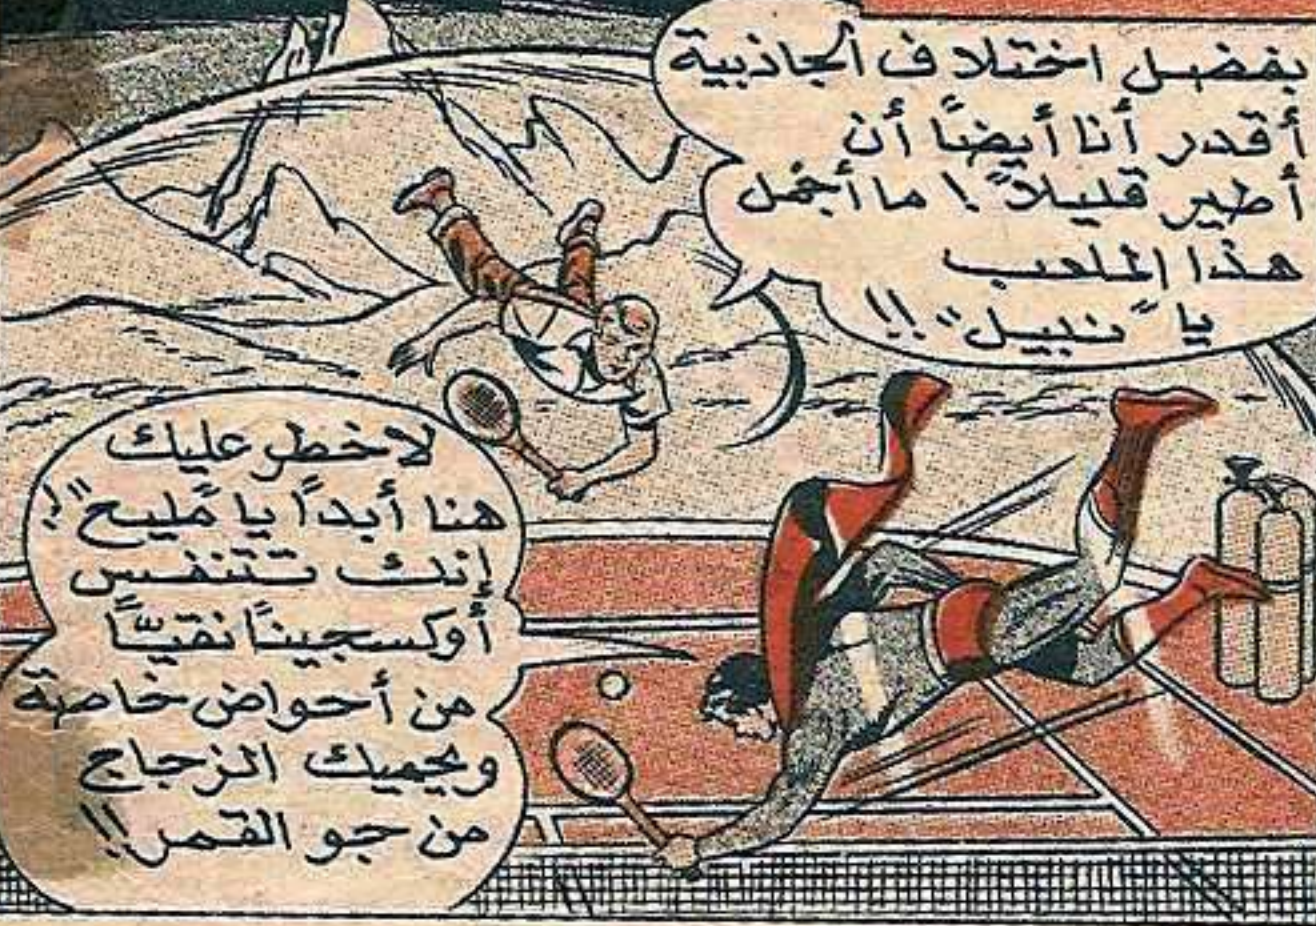 بفضل اختلاف الجاذبية
أقدر أنا أيضاً أن
أطير قليلاً! ما أجمل
هذا الملعب
يا "نبيل"!!
لا خطر عليك
هنا أبداً يا "مليح"!
إنك تتنفس
أوكسجيناً نقيّاً
من أحواض خاصة
ويحميك الزجاج
من جو القمر!!